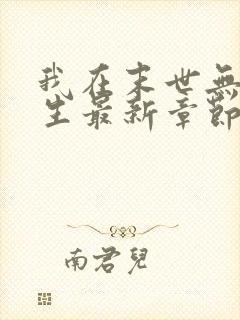 我在末世無
生最新章節
南君兒